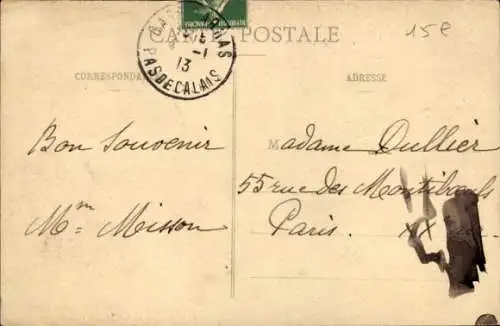 15€
CARTE POSTALE
PAS DE CALAIS
5 -1
13
CORRESPONDANCE
ADRESSE
Bon Souvenir
Mm Misson
Madame Dullier
55 rue des Montiboeufs
Paris. XX